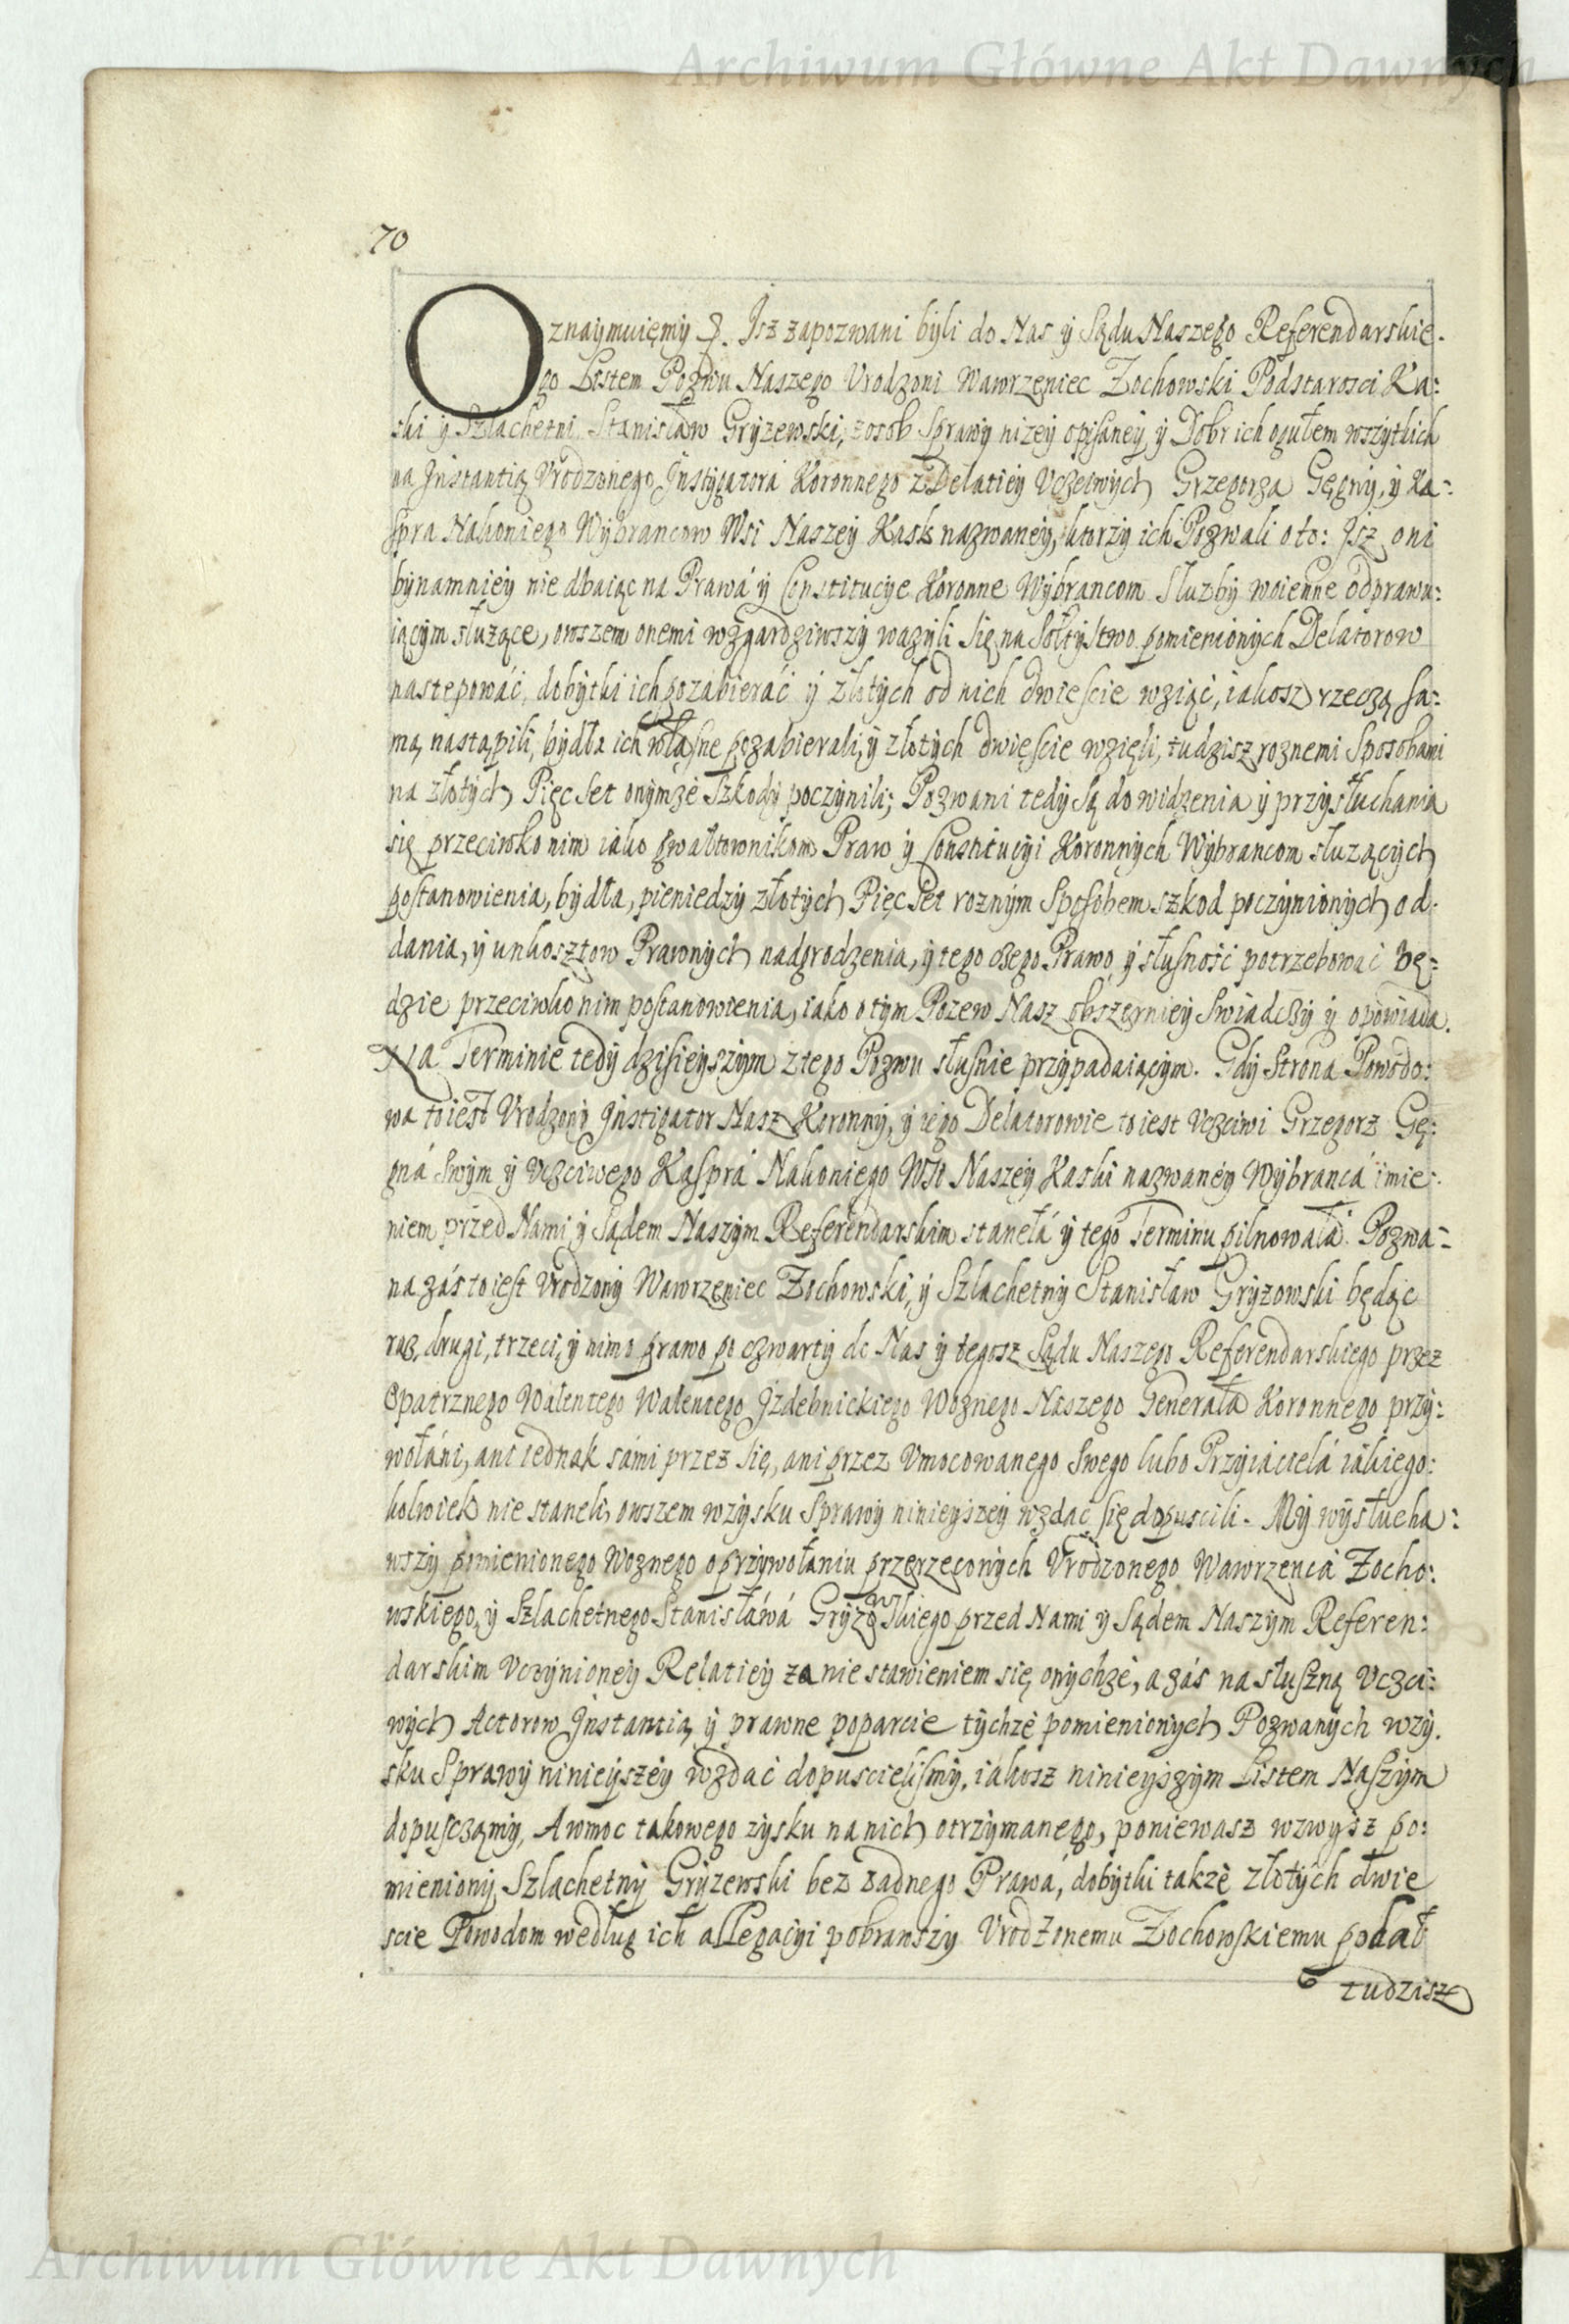 Archiwum Główne Akt Dawnych
70
Oznaymuięmy &. Jsz zapozwani byli do Nas y Sądu Naszego Referendarskie.
go Listem Pozwu Naszego Vrodzoni Wawrzeniec Zochowski Podstarosci Ka:
ski y Szlachetni Stanisław Gryzewski, z osob Sprawy nizey opisaney y Dobr ich ogułem wszytkich
na Jnstantią Vrodzonego Jnstygatora Koronnego z Delatiey Vczciwych Grzegorza Gęgny, y Ka:
spra Nakoniego Wybrancow Wsi Naszey Kask nazwaney, ktorzy ich Pozwali oto: Jsz oni
bynamniey nie dbaiąc na Prawá y Constitucye Koronne Wybrancom Sluzby woienne odprawu:
iącym służące, owszem onemi wzgardziwszy wazyli się na Sołtystwo pomienionych Delatorow
nastepowáć, dobytki ich pozabieráć y złotych od nich dwiescie wziąć, iakosz rzeczą sa:
mą nastąpili, bydła ich własne pozabierali, y złotych dwieście wzięli, tudzisz roznemi Sposobami
na złotych Pięc Set onymże Szkody poczynili; Pozwani tedy są do widzenia y przysłuchania
się przeciwko nim iako gwałtownikom Praw y Constitucyi Koronnych Wybrancom słuzących
postanowienia, bydła, pieniedzy złotych Pięc Set roznym Sposobem szkod poczynionych od.
dania, y unkosztow Prawnych nadgrodzenia, y tego czego Prawo y słusność potrzebować bę:
dzie przeciwko nim postanowienia, iako o tym Pozew Nasz obszerniey Swiadczy y opowiada.
Na Terminie tedy dzisieyszym z tego Pozwu słusnie przypadaiącym. Gdy Strona Powodo:
wa to iest Vrodzony Jnstigator Nasz Koronny, y iego Delatorowie to iest Vczciwi Grzegorz Gę:
gná Swym y Vczciwego Kasprá Nakoniego Wsi Naszey Kaski nazwaney Wybrancá imie:
niem przed Nami y Sądem Naszym Referendarskim stanełá y tego Terminu pilnowałá. Pozwa:
na zás to iest Vrodzony Wawrzeniec Zochowski, y Szlachetny Stanisław Gryzowski będąc
raz, drugi, trzeci, y nimo prawo po czwarty do Nas y tegosz Sądu Naszego Referendarskiego przez
Opatrznego Walentego Walentego Jzdebnickiego Woznego Naszego Generała Koronnego przy:
wołáni, ani iednak sámi przez się, ani przez Vmocowanego Swego lubo Przyiacielá iákiego:
kolwiek nie staneli, owszem w zysku Sprawy ninieyszey wzdać się dopuscili. My wysłucha:
wszy pomienionego Woznego o przywołaniu przerzeconych Vrodzonego Wawrzencá Zocho:
wskiego, y Szlachetnego Stanisłáwá Gryzowskiego przed Nami y Sądem Naszym Referen:
darskim Vczynioney Relatiey za nie stawieniem się onychże, a zás na słuszną Vczci:
wych Actorow Jnstantią y prawne poparcie tychże pomienionych Pozwanych w zy.
sku Sprawy ninieyszey wzdać dopuscielismy, iakosz ninieyszym Listem Naszym
dopuszczamy, A w moc takowego zysku na nich otrzymanego, poniewasz wzwysz po:
mieniony Szlachetny Gryzewski bez zadnego Prawá, dobytki takze złotych dwie
scie Powodom według ich allegacyi pobrawszy Vrodzonemu Zochowskiemu podał
tudzisz
Archiwum Główne Akt Dawnych